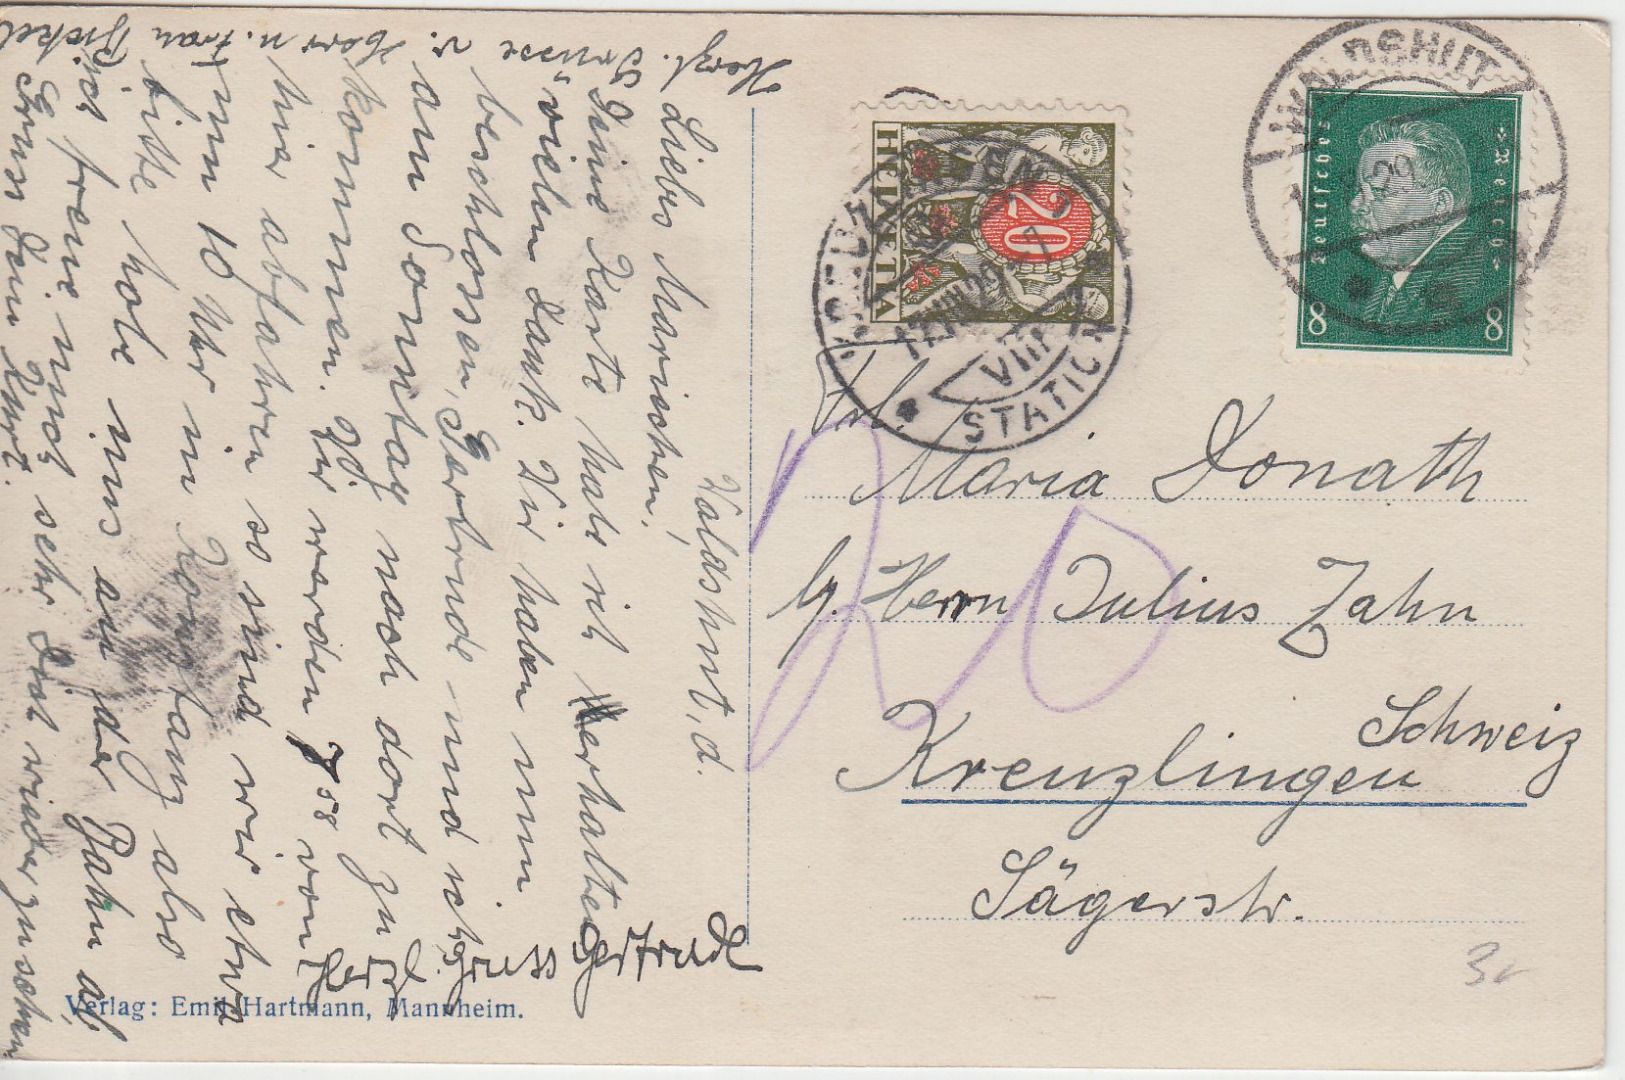 Waldshut, d.
Liebes Mariechen!
Deine Karte habe ich erhalten
vielen Dank. Wir haben nun
beschlossen, Gertrude und ich,
am Sonntag nach dort zu
kommen. Wir werden 7 58 von
hier abfahren so sind wir etwa
um 10 Uhr in Konstanz also
bitte hole uns an der Bahn ab,
Ich freue mich sehr Dich wieder zu sehen
Gruss Dein Kurt.
Herzl. Grüsse v. Herr u. Frau
Herzl. Gruss Gertrude
Verlag: Emil Hartmann, Mannheim.
HELVETIA
20
VIII
STATION
WALDSHUT
29
Deutsches
Reich
8
8
Frl.
Maria Donath
b/. Herrn Julius Zahn
Schweiz
Kreuzlingen
Jägerstr.
20